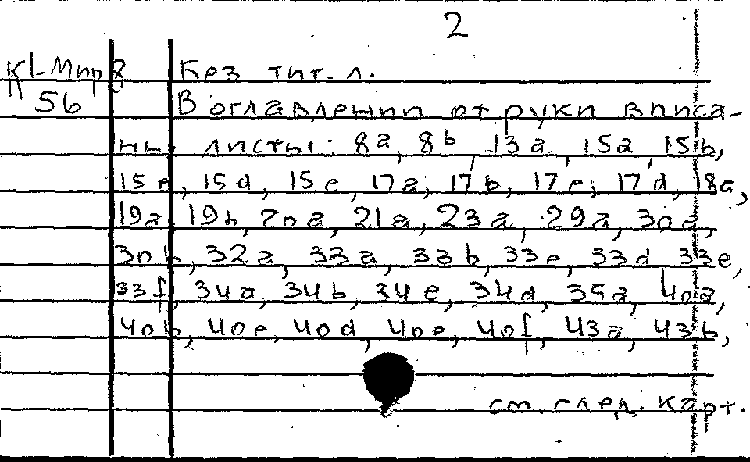 2
Kl-Мир 8
56
Без тит. л.
В оглавлении от руки вписа-
ны листы: 8a, 8b, 13a, 15a, 15b,
15c, 15d, 15e, 17a, 17b, 17c, 17d, 18a,
19a, 19b, 20a, 21a, 23a, 29a, 30a,
30b, 32a, 33a, 33b, 33c, 33d, 33e,
33f, 34a, 34b, 34c, 34d, 35a, 40a,
40b, 40c, 40d, 40e, 40f, 43a, 43b,
см. след. карт.